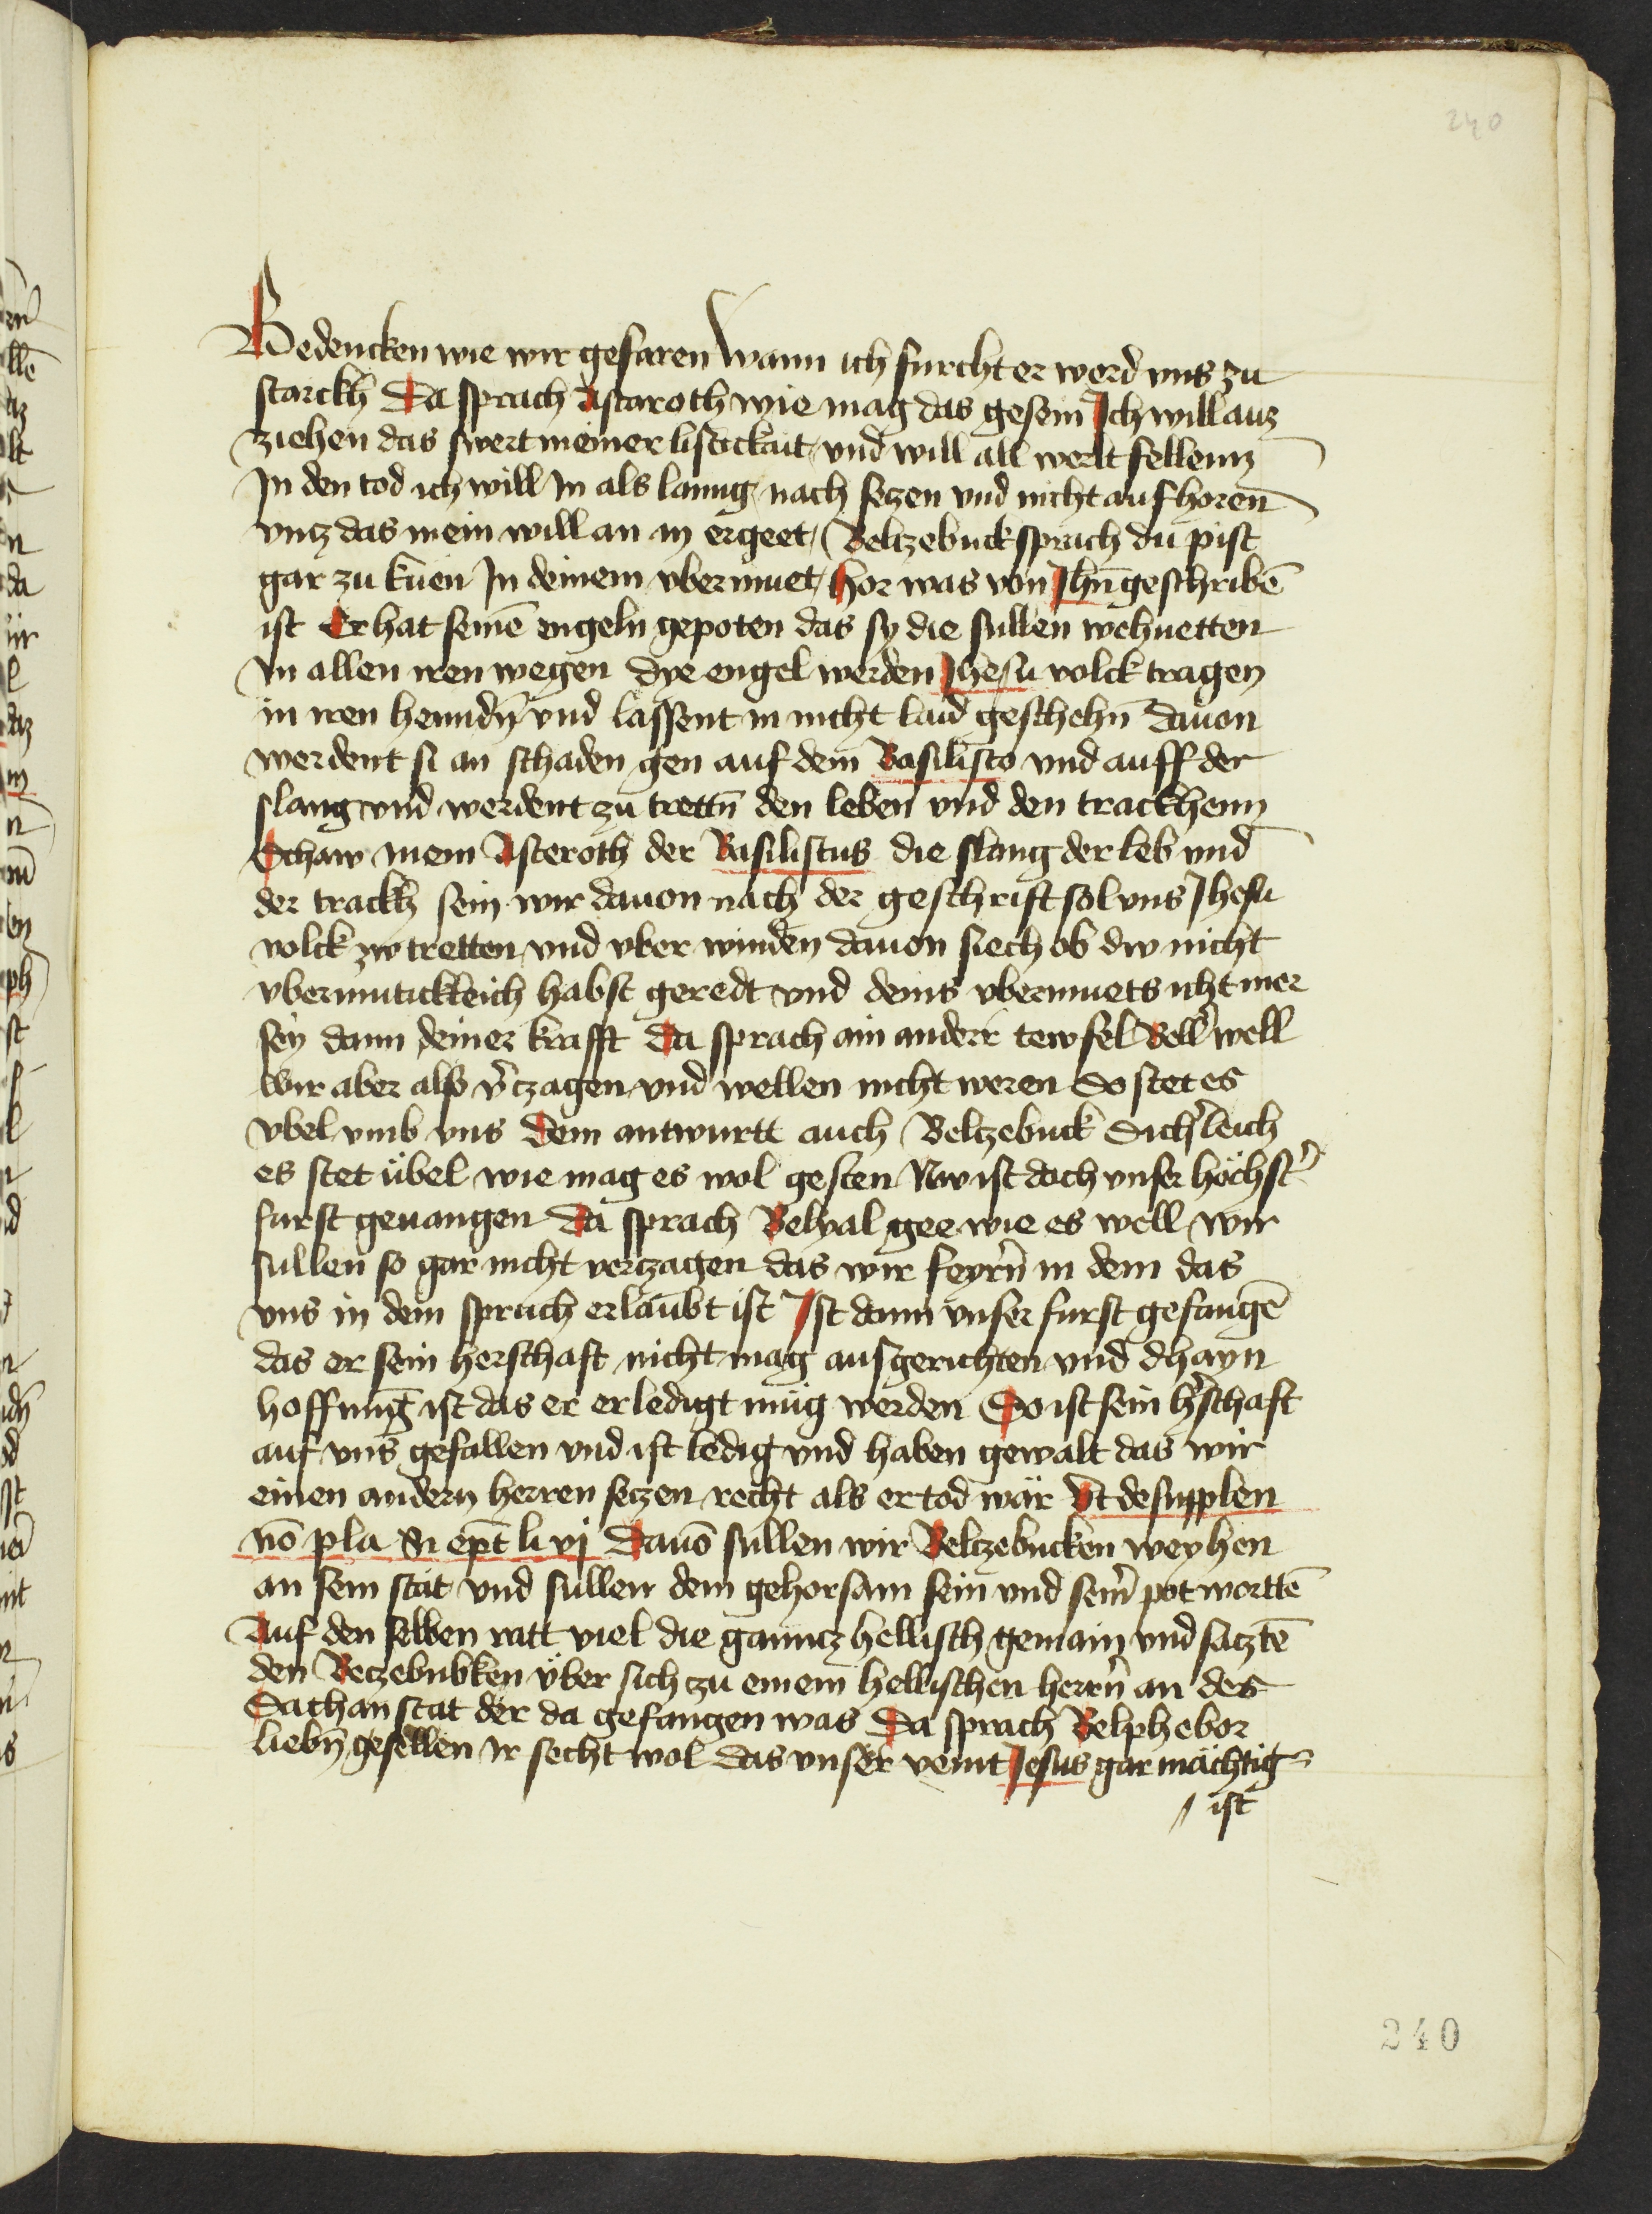 240
Bedencken wie wir gefaren wann ich furcht er werd vns zu
starckh Da sprach Astaroth wie mag das gesein Ich will auz
ziehen das swert meiner listickait vnd will all werlt fellenn
In den tod ich will In als lanng nach seczen vnd nicht aufhoren
vncz das mein will an in ergeet Belczebuck sprach du pist
gar zu kuen In deinem vbermuet hor was von Jhu geschribē
ist Er hat seinē engeln gepoten das sy die sullen wehuetten
In allen iren wegen dye engel werden Jhesu volck tragen
in iren henndn̄ vnd lassent in nicht laid geschehn̄ dauon
werdent si an schaden gen auf dem Basilisco vnd auff der
slang vnd werdent zu trettn̄ den leben vnd den trackhenn
Schaw mein Asteroth der Basiliscus die slang der leb vnd
der trackh sein wir dauon nach der geschrift sol vns Jhesu
volck zw tretten vnd vber winden dauon siech ob dw nicht
vbermutickleich habst geredt vnd deins vbermuets icht mer
sey dann deiner krafft Da sprach ain anderr tewfel Bell well
wir aber also v̄czagen vnd wellen nicht weren So stet es
vbel vmb vns Dem antwurtt auch Belczebuck Sich̄leich
es stet übel wie mag es wol gesten Nw ist doch vnser höchst̄
furst geuangen Da sprach Belyal gee wie es well wir
sullen so gar nicht verczagen das wir feyrn̄ in dem das
vns in dem spruch erlaubt ist Ist dann vnser furst gefangē
das er sein herschaft nicht mag ausgerichten vnd dhayn
hoffnung ist das er erledigt müg werden So ist sein h̄schaft
auf vns gefallen vnd ist ledig vnd haben gewalt das wir
einen andern herren seczen recht als er tod wär Vt de supplen
nō pla Si ep̄c li vj Dauō sullen wir Belczebucken weyhen
an sein stat vnd sullen dem gehorsam sein vnd sein̄ pot worttē
Auf den selben ratt viel die ganncz hellisch gemain vnd sacztē
den Beczebubken über sich zu einem hellischen herrn̄ an des
Sathan stat der da gefangen was Da sprach Belphebor
liebn̄ gesellen ir secht wol das vnser veint Jesus gar mächtig
ist
240